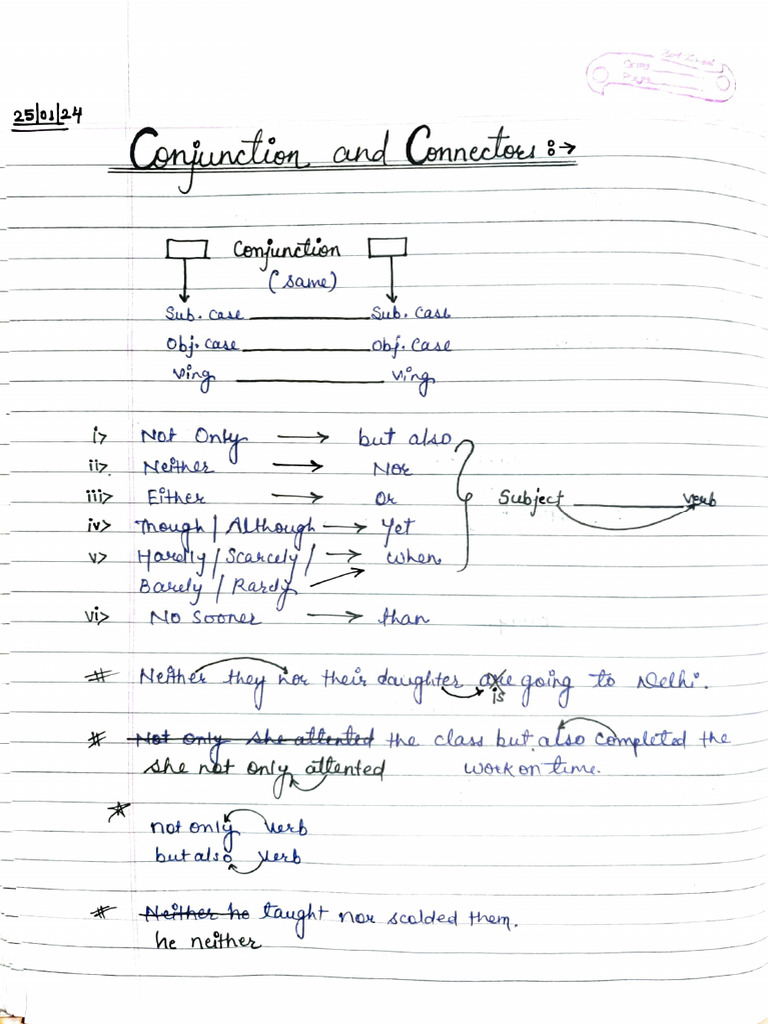 25/01/24
Conjunction and Connectors :→
Conjunction
(same)
Sub. case Sub. case
Obj. case Obj. case
Ving Ving
i> Not Only → but also
ii>. Neither → Nor
iii> Either → Or Subject verb
iv> Though / Although → Yet
v> Hardly / Scarcely / → when
Barely / Rardy
vi> No Sooner → than
# Neither they nor their daughter are going to Delhi.
is
# Not only she attented the class but also completed the
she not only attented work on time.
not only verb
but also verb
# Neither he taught nor scolded them.
he neither